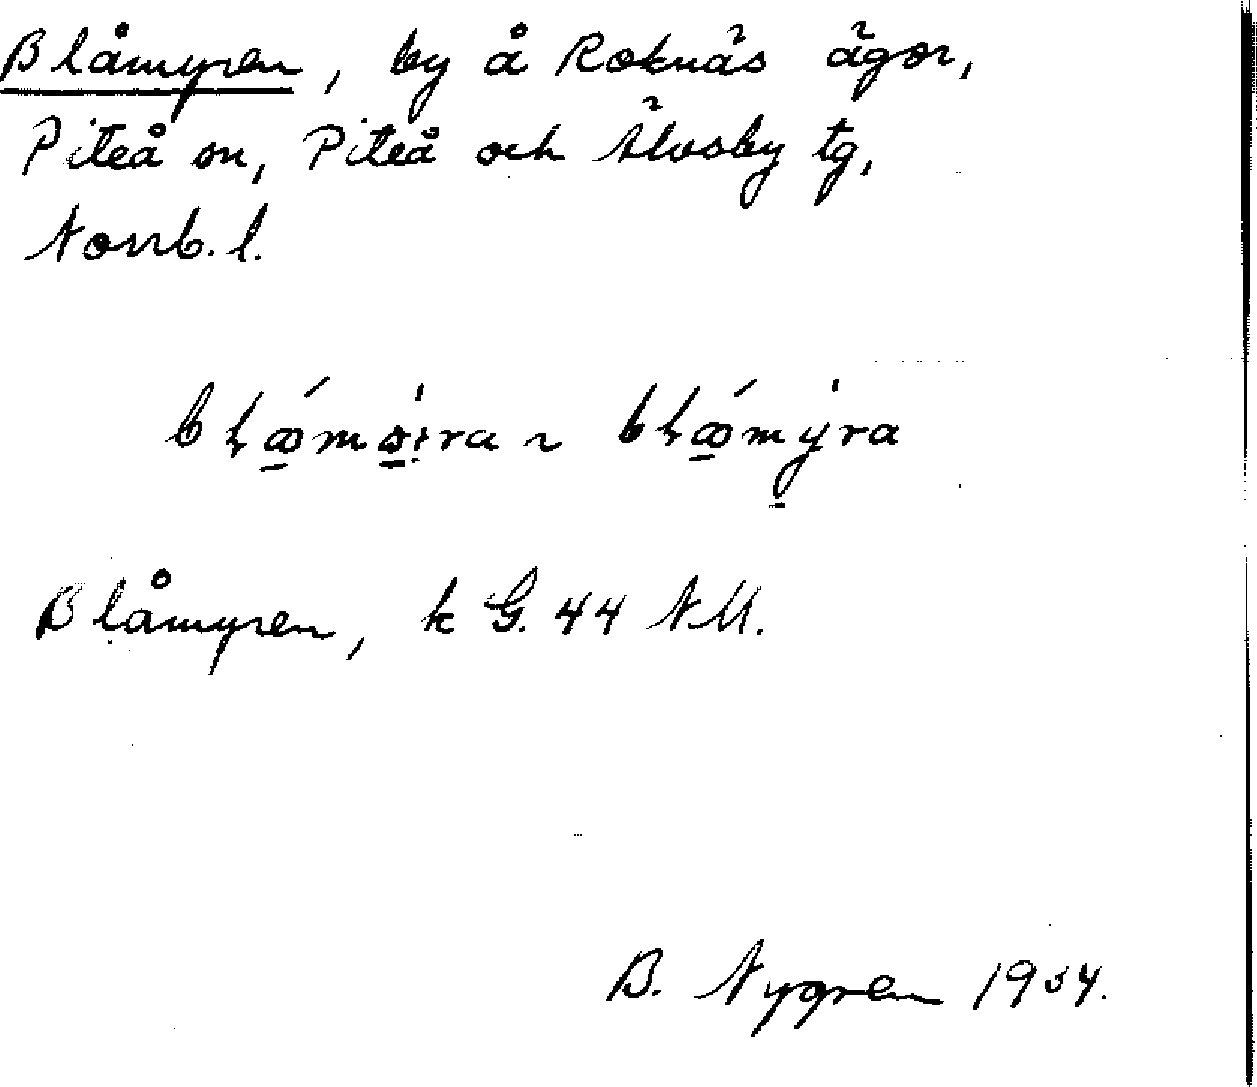 Blåmyren, by å Roknäs ägor,
Piteå sn, Piteå och Älvsby tg,
Norrb. l.
Blåmyren, k G. 44 NM.
B. Nygren 1934.